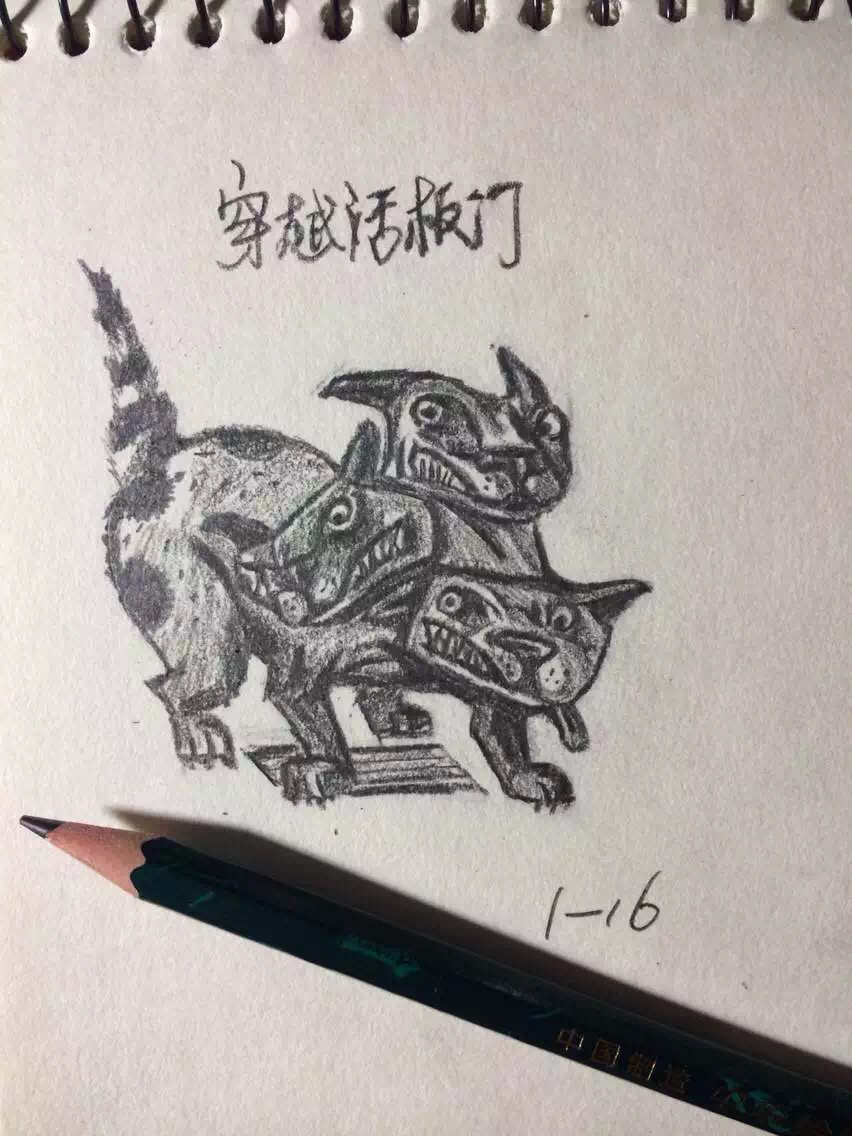 穿越活板门
1-16
中国制造